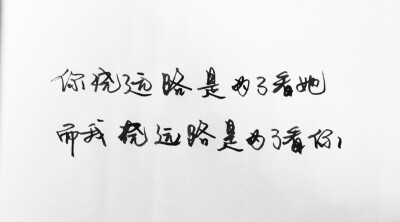 你绕了远路是为了看她
而我绕远路是为了看你,